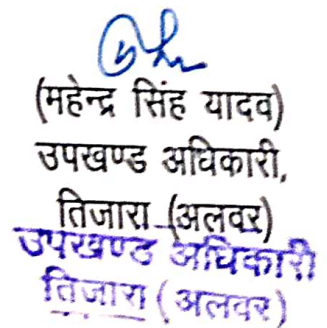 (महेन्द्र सिंह यादव)
उपखण्ड अधिकारी,
तिजारा (अलवर)
उपखण्ड अधिकारी
तिजारा (अलवर)